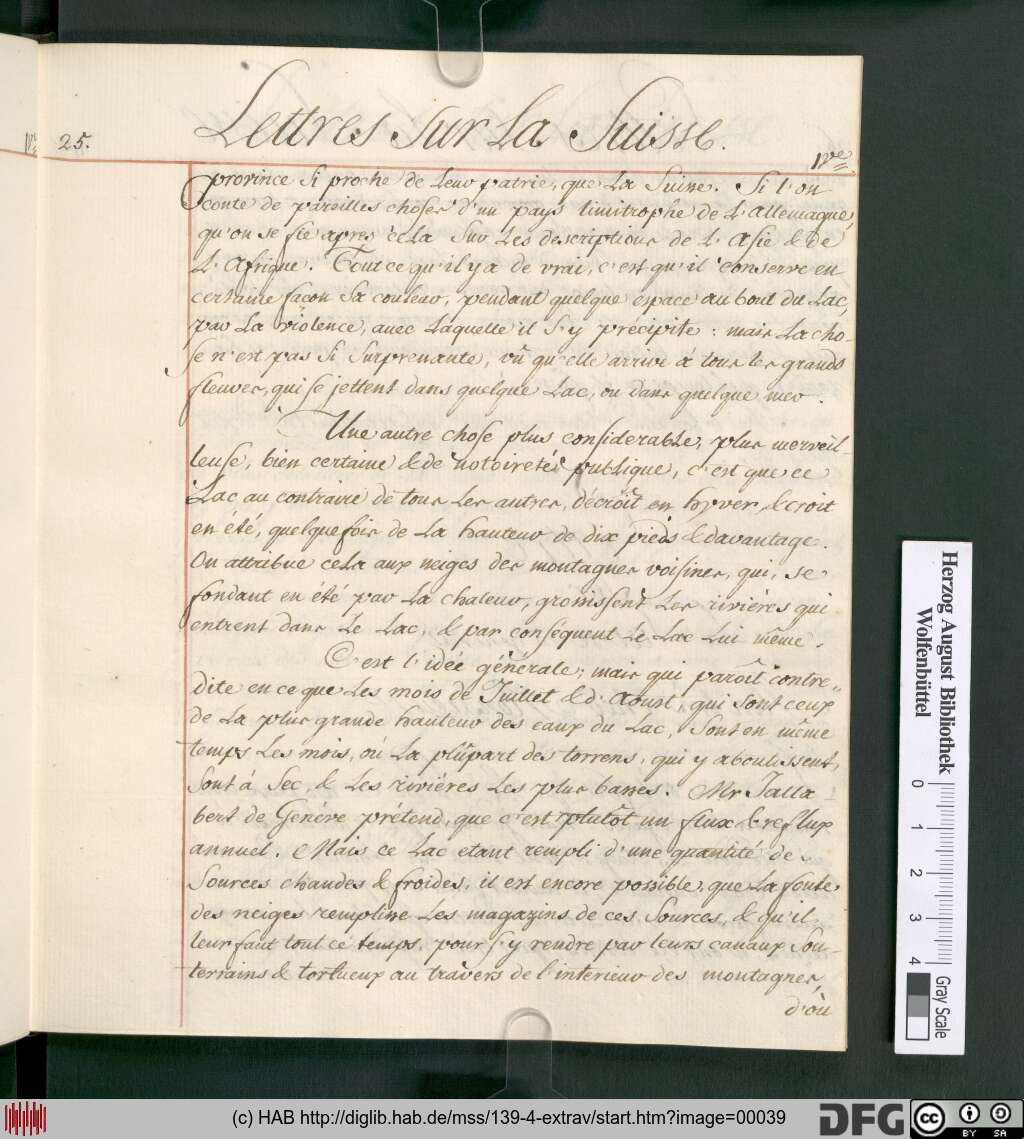 Lettres Sur La Suisse.
25.
IVe
province si proche de Leur patrie, que La Suisse. Si l'on
conte de pareilles choses d'un pays limitrophe de L'allemagne,
qu'on se fie apres cela Sur Les descriptions de L'Asie & de
L'Afrique. Tout ce qu'il y a de vrai, c'est qu'il conserve en
certaine façon Sa couleur, pendant quelque espace au bout du Lac,
par La violence, avec Laquelle il S'y précipite: mais La cho-
se n'est pas Si Surprenante, vû qu'elle arrive à tous les grands
fleuves, qui se jettent dans quelque Lac, ou dans quelque mer.
Une autre chose plus considerable, plus merveil-
leuse, bien certaine & de notoireté publique, c'est que ce
Lac au contraire de tous Les autres, décroît en hyver, & croit
en été, quelque fois de La hauteur de dix pieds & davantage.
On attribue cela aux neiges des montagnes voisines, qui, se
fondant en été par La chaleur, grossissent Les rivières qui
entrent dans Le Lac, & par conséquent Le Lac Lui même.
C'est l'idée générale; mais qui paroît contre„
dite en ce que Les mois de Juillet & d'Aoust, qui Sont ceux
de La plus grande hauteur des eaux du Lac, Sont en même
temps Les mois, où La plûpart des torrens, qui y aboutissent,
Sont à Sec, & Les rivières Les plus basses. Mr Jalla-
bert de Genéve prétend, que c'est plutôt un flux & reflux
annuel. Mais ce Lac etant rempli d'une quantité de
Sources chaudes & froides, il est encore possible, que La fonte
des neiges remplisse Les magazins de ces Sources, & qu'il
leur faut tout ce temps, pour S'y rendre par leurs canaux Sou-
terrains & tortueux au travers de l'intérieur des montagnes,
d'où
Herzog August Bibliothek
Wolfenbüttel
0 1 2 3 4
Gray Scale
(c) HAB http://diglib.hab.de/mss/139-4-extrav/start.htm?image=00039
DFG
cc BY SA